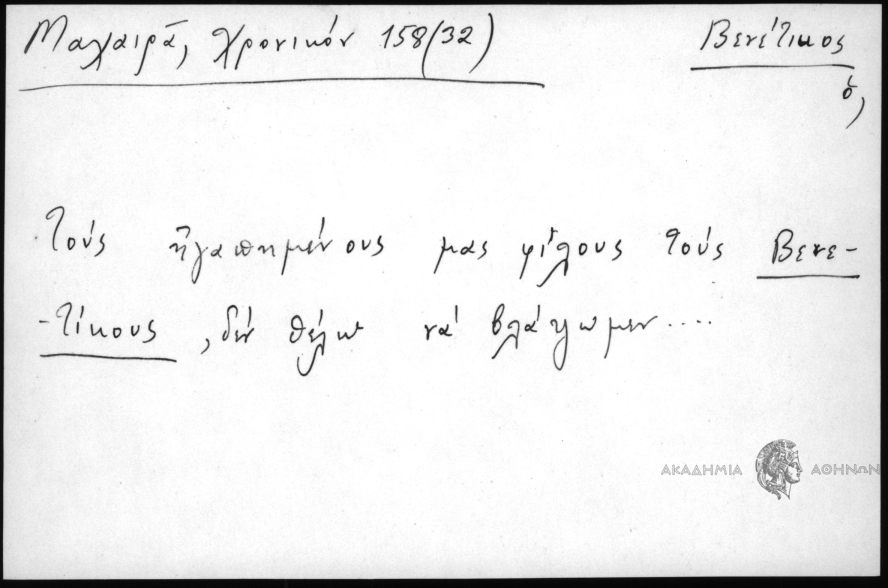 Μαχαιρᾶ, Χρονικόν 158(32)
Βενέτικος
ὁ,
Τούς ἠγαπημένους μας φίλους τούς Βενε-
-τίκους, δέν θέλω νά βλάψωμεν....
ΑΚΑΔΗΜΙΑ ΑΘΗΝΩΝ